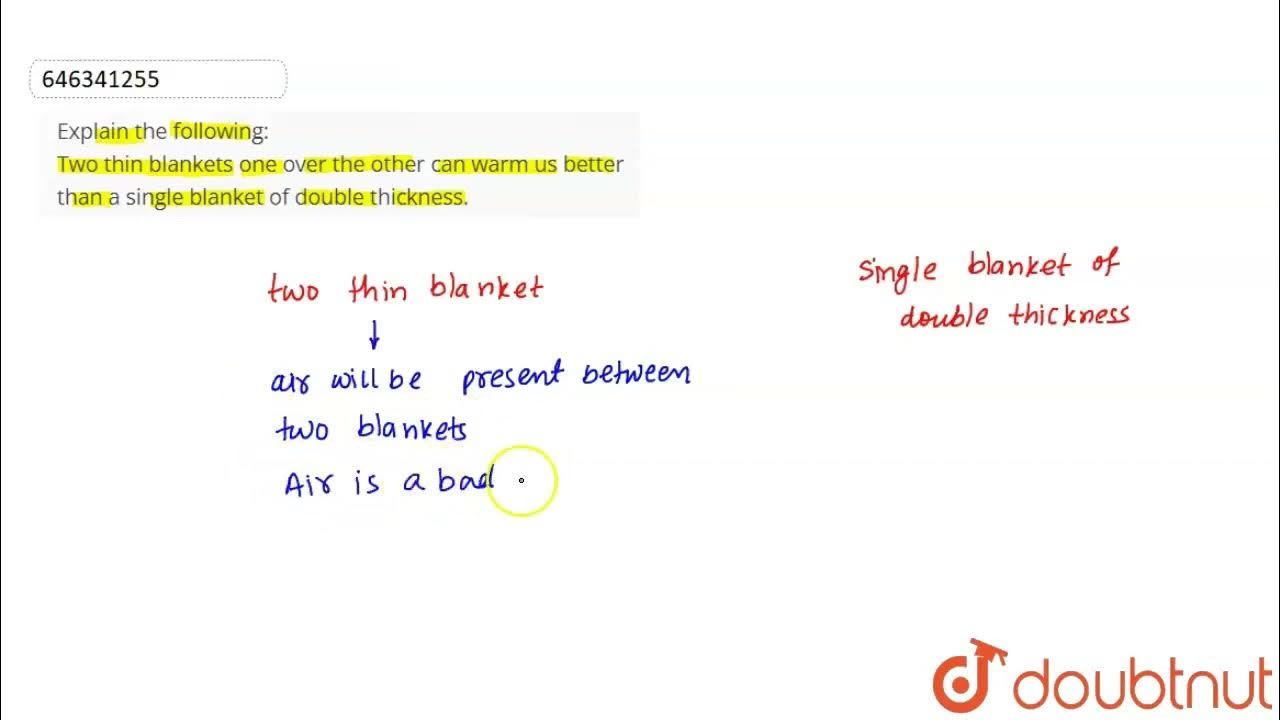 646341255
Explain the following:
Two thin blankets one over the other can warm us better
than a single blanket of double thickness.
two thin blanket
air will be present between
two blankets
Air is a bad
single blanket of
double thickness
doubtnut